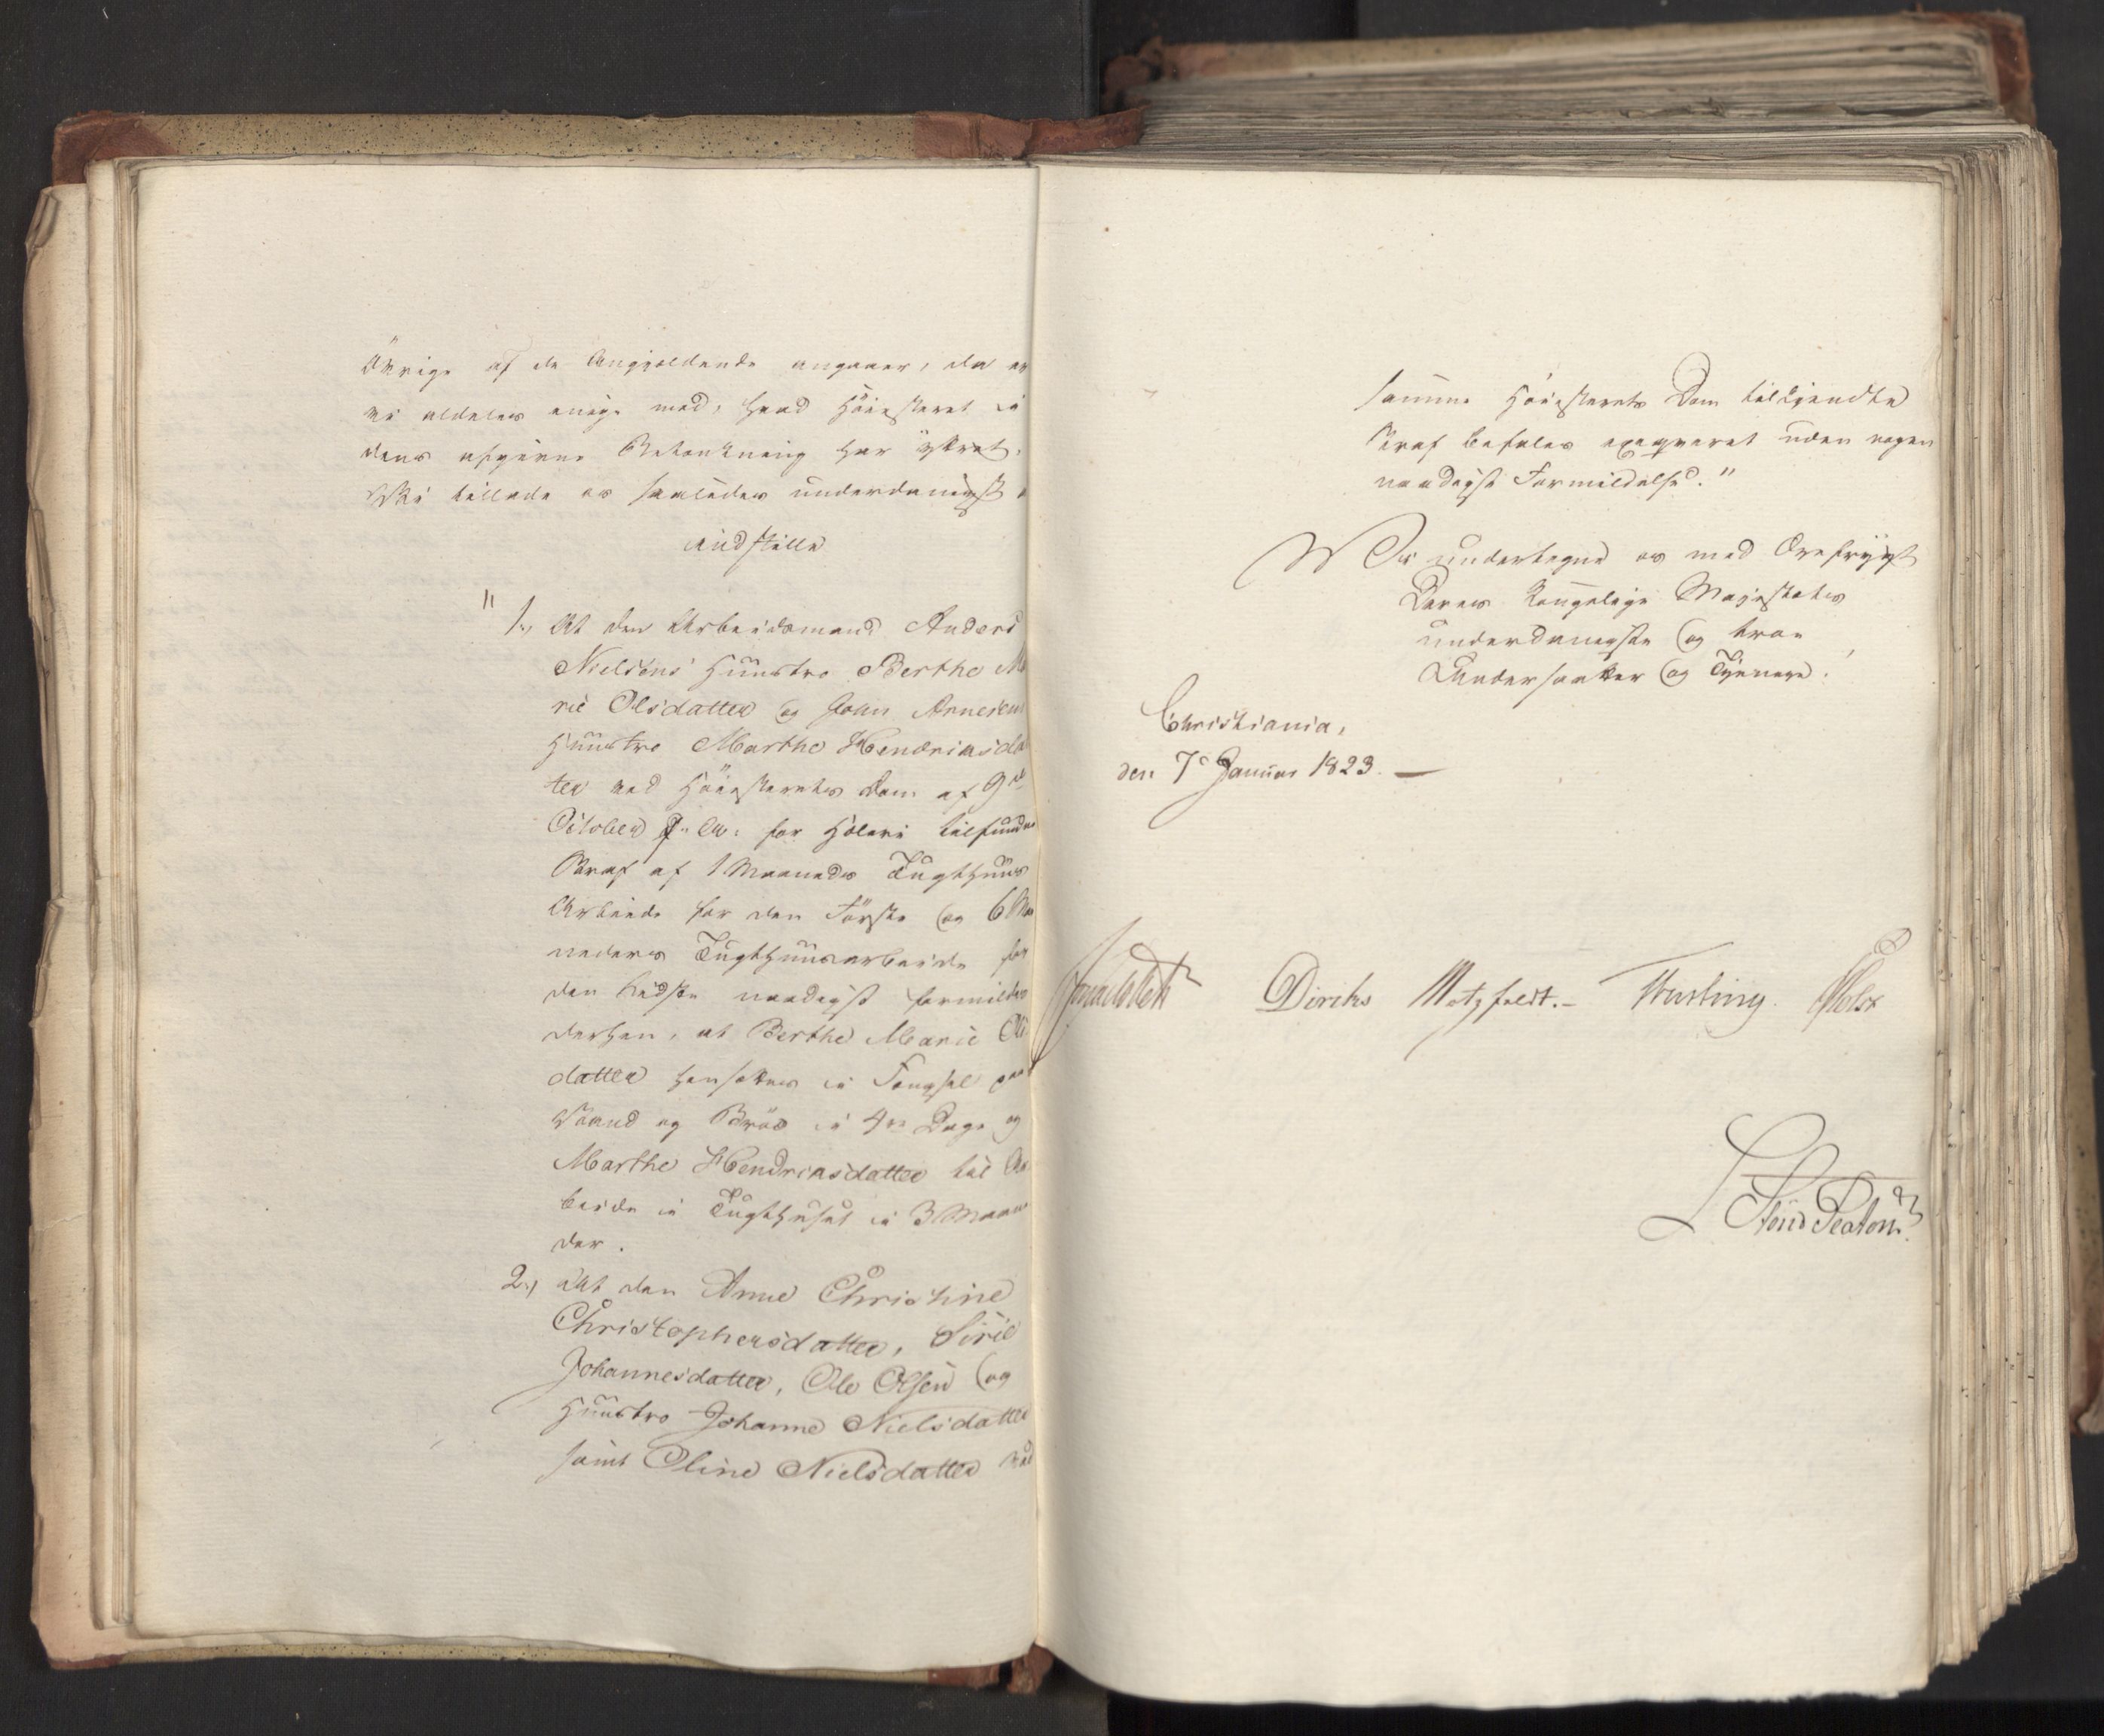 övrige af de Angjeldende angaaer, da er
vi aldeles enige med, hvad Höiesteret i
dens afgivne Betænkning har yttret.
Vi tillade os saaledes underdanigst
indstille
" 1., At den Arbeidsmand Anders
Nielsens Huustro Berthe Ma
rie Olsdatter og John Arnesens
Huustro Marthe Hendriksdat
ter ved Höiesterets Dom af 9de
October f. A. for Höleri tilfundne
Straf af 1 Maaneds Tugthuus
Arbeide for den Förste og 6 Maa
neders Tugthuusarbeide for
den Sidste naadigst formildes
derhen, at Berthe Marie Ols
datter hensættes i Fængsel paa
Vand og Bröd i 4re Dage og
Marthe Hendriksdatter til Ar
beide i Tugthuset i 3 Maane
der.
2., At den Anne Christine
Christophersdatter, Siri
Johannesdatter, Ole Olsen og
Huustro Johanne Nielsdatter
samt Oline Nielsdatter ved
samme Höiesterets Dom tilkjendte
Straf befales exeqveret uden nogen
naadigst Formildelse."
Vi undertegne os med Ærefrygt
Deres Kongelige Majestæts
underdanigste og troe
Undersaatter og Tjenere.
Christiania,
den 7de Januar 1823. —
Diriks Motzfeldt. Treschow Holst